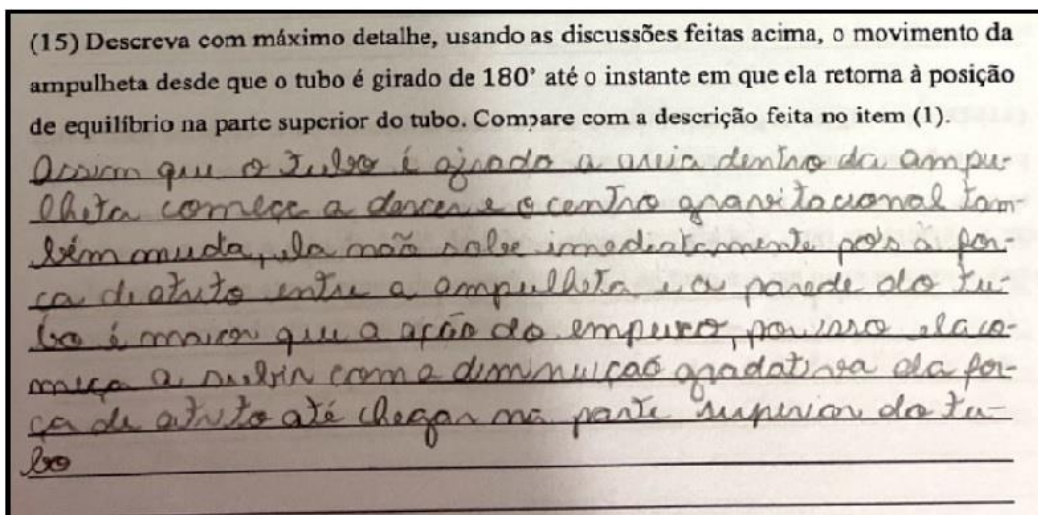 (15) Descreva com máximo detalhe, usando as discussões feitas acima, o movimento da
ampulheta desde que o tubo é girado de 180° até o instante em que ela retorna à posição
de equilíbrio na parte superior do tubo. Compare com a descrição feita no item (1).
Assim que o tubo é girado a areia dentro da ampu-
lheta começa a descer e o centro gravitacional tam-
bém muda, ela não sobe imediatamente pois a for-
ça de atrito entre a ampulheta e a parede do tu-
bo é maior que a ação do empuxo, por isso ela co-
meça a subir com a diminuição gradativa da for-
ça de atrito até chegar na parte superior do tu-
bo